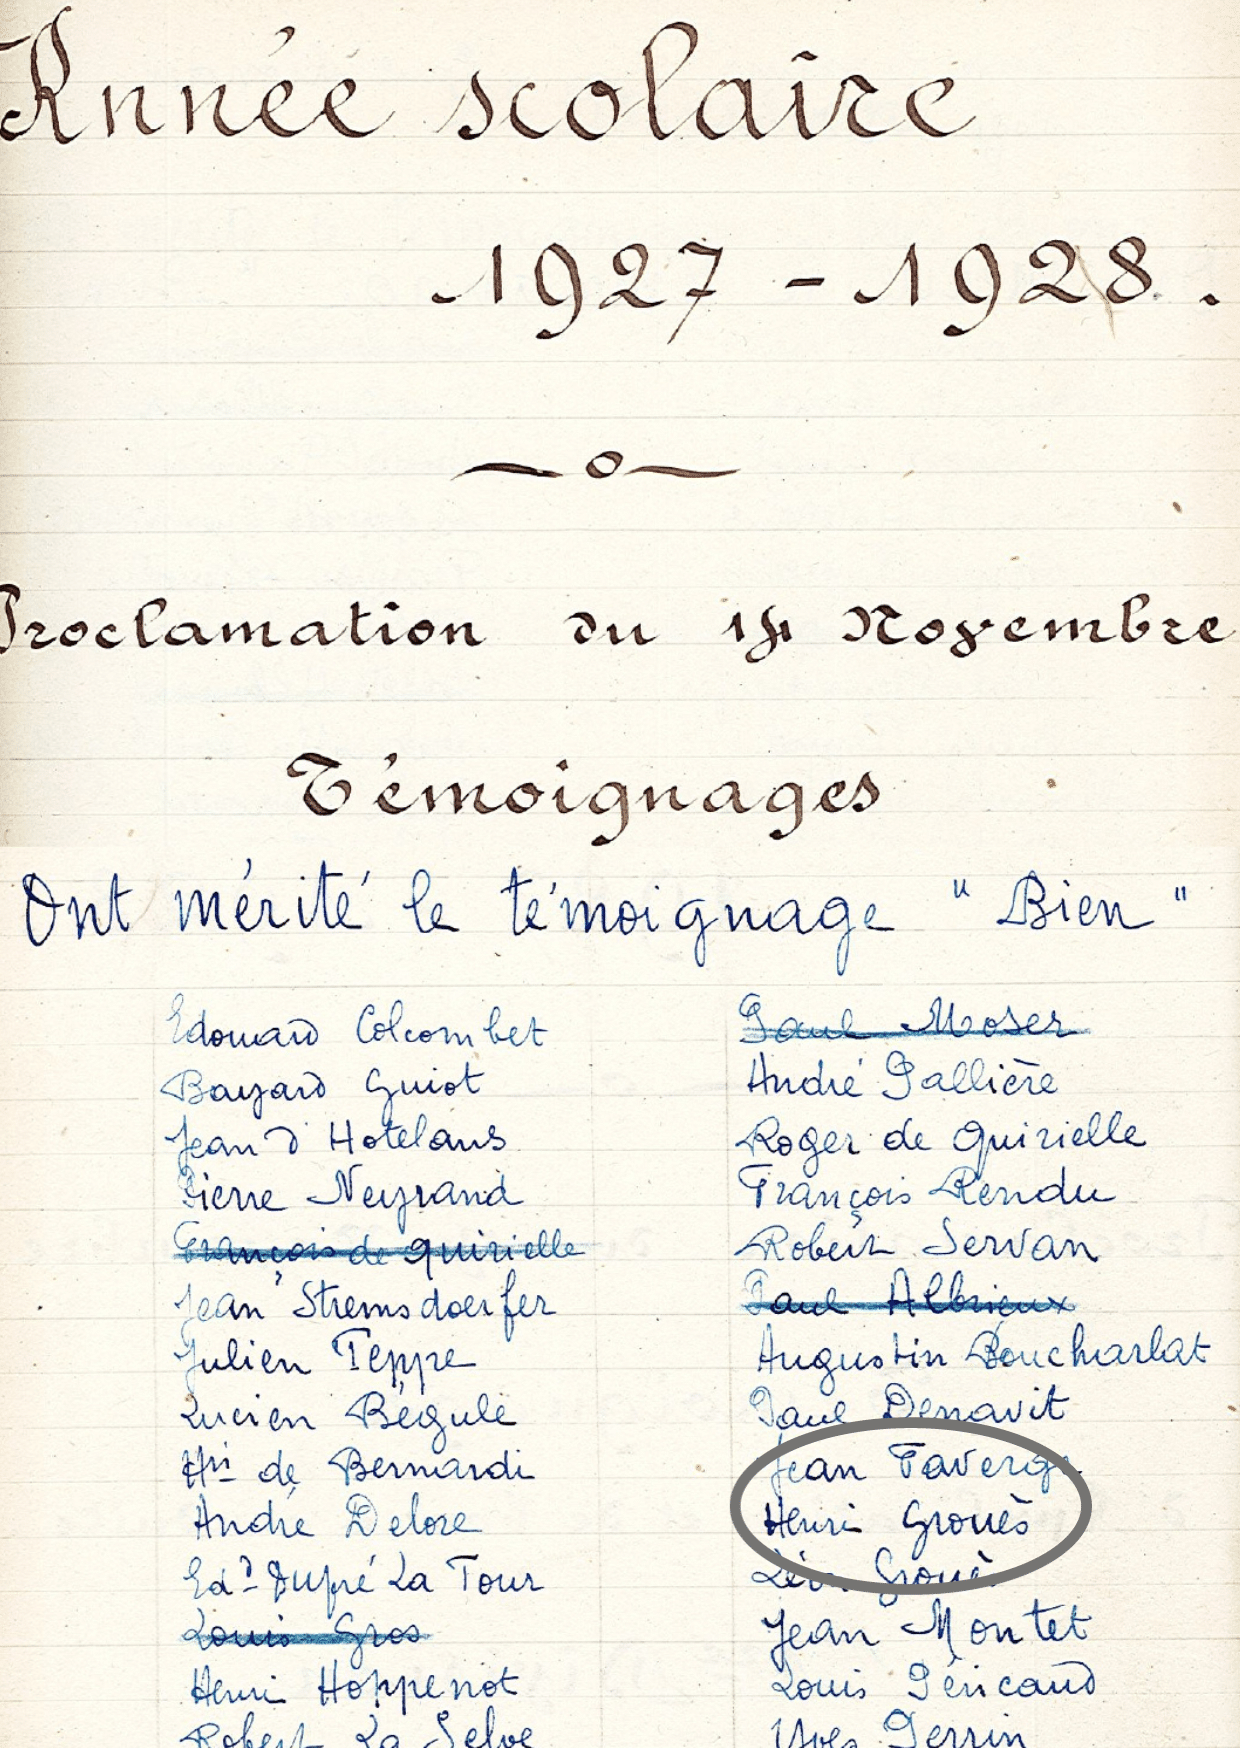 Année scolaire
1927 - 1928.
Proclamation du 14 Novembre
Témoignages
Ont mérité le témoignage " Bien "
Edouard Colcombet
Bayard Guiot
Jean d'Hotelans
Pierre Neyrand
François de Quirielle
Jean Stremsdoerfer
Julien Teppe
Lucien Bégule
Hri de Bernardi
André Delore
Edd Dupré La Tour
Louis Gros
Henri Hoppenot
Robert La Selve
Paul Moser
André Pallière
Roger de Quirielle
François Rendu
Robert Servan
Paul Albrieux
Augustin Boucharlat
Paul Denavit
Jean Faverge
Henri Grouès
Léon Grouès
Jean Montet
Louis Péricaud
Yves Perrin